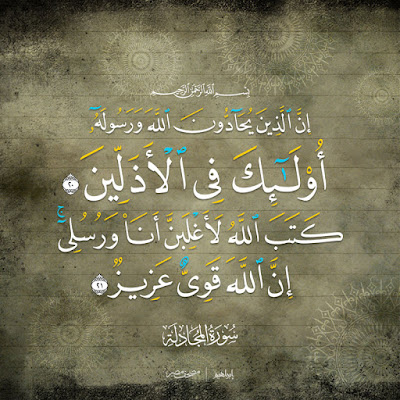 بِسْمِ اللَّهِ الرَّحْمَٰنِ الرَّحِيمِ
إِنَّ ٱلَّذِينَ يُحَآدُّونَ ٱللَّهَ وَرَسُولَهُۥٓ
أُو۟لَـٰٓئِكَ فِى ٱلْأَذَلِّينَ ٢٠
كَتَبَ ٱللَّهُ لَأَغْلِبَنَّ أَنَا۠ وَرُسُلِىٓ ۚ
إِنَّ ٱللَّهَ قَوِىٌّ عَزِيزٌ ٢١
سُورَةُ المُجَادلَة
إبراهيم | مصحف مصر